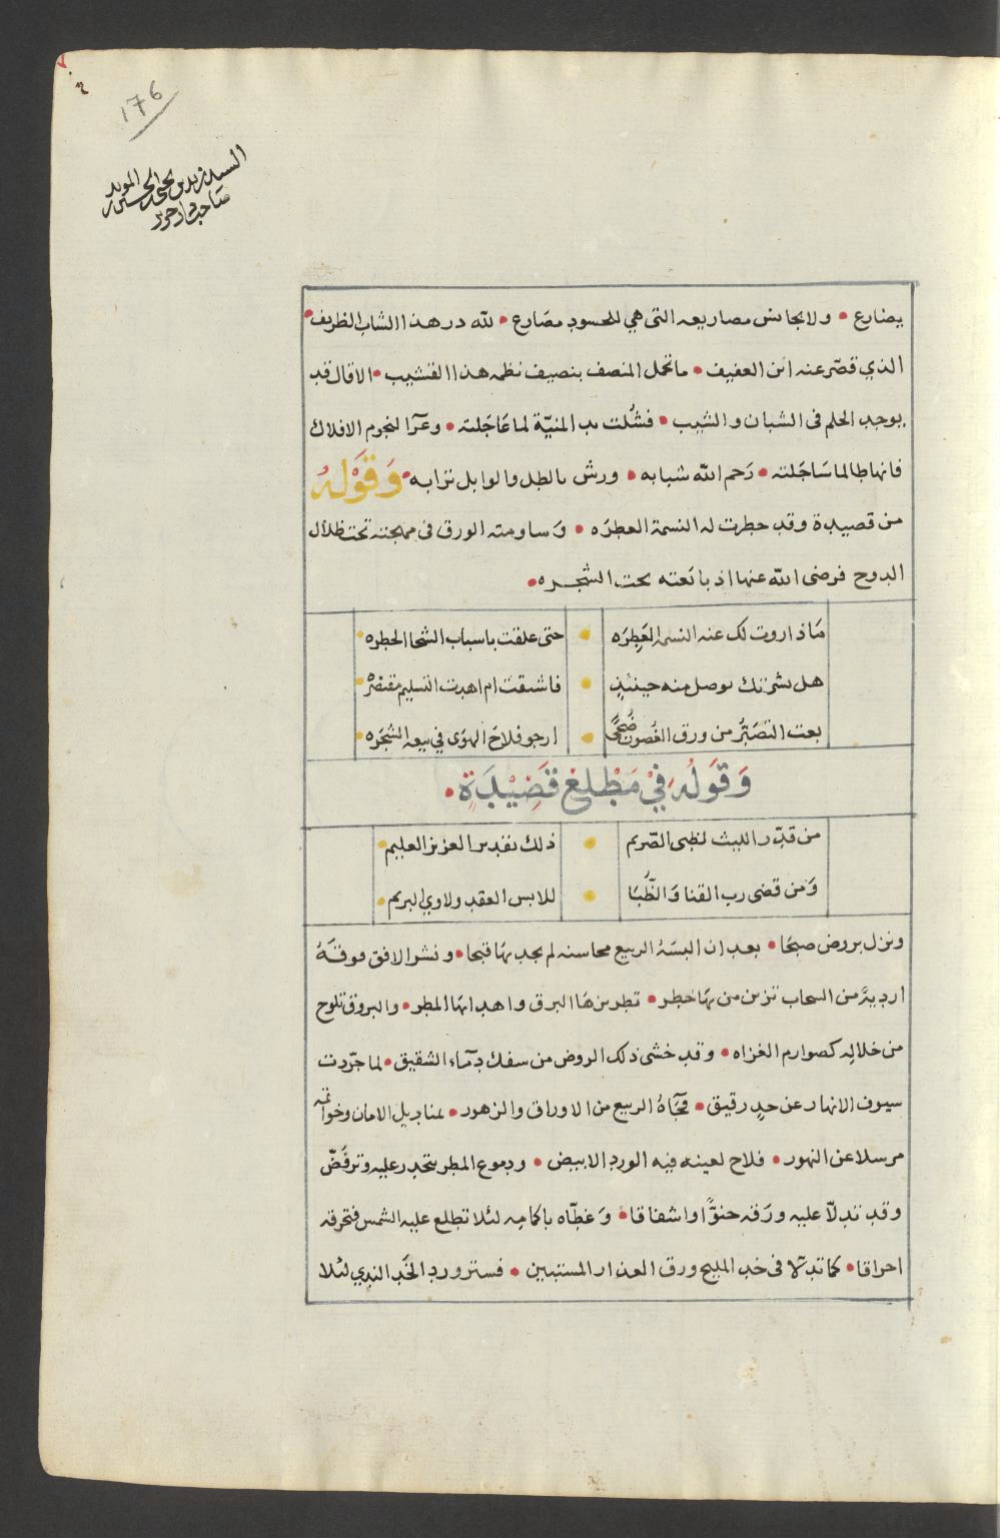 176
السيد زيد بن يحيى بن الحسين المويد
صاحب
يضارع • ولا يجانس مصاريعه التى هي للحسود مصارع • لله در هذا الشاب الظريف •
الذي قصّر عنه ابن العفيف • ما تحمل المنصف بنصيف نظمه هذا القشيب • الا قال قد
يوجد الحلم فى الشبان والشيب • فشُلت يد المنيّة لما عَاجَلته • وعَزآ لنجوم الافلاك
فانها طالما سَاجَلته • رَحم الله شبابه • ورش بالطل والوابل ترابه • وَقَوْلهُ
من قصيدة وقد خطرت له النسمة العطرَه • وَساومته الورق فى مهجته تحت ظلال
الدوح فرضى الله عنها اذ بايَعته تحت الشجره •
مَاذا روت لك عنه النسمة العَطِرَه • حتى علقت باسباب الشحا الخطره
هل بشرتك بوصل منه حينئذٍ • فاشتقت ام اهدت التسليم مقتصرَه
بعت التصَبّر من ورق الغُصون ضُحىً • ارجو فلاحَ الهوَى في بيعة الشجَره
وَقَوَلُه فِيْ مَطْلِعْ قَصِيْدَةٍ •
من قدّر الليث لظبى الصّريم • ذلك تقدير العزيز العليم
وَمن قضى رب القنا وَالظُبَا • للابس العقد ولاوي البريم
ونزل بروض صبحَا • بعد ان البسَهُ الربيع محاسنه لم يجد بهَا قبحا • ونشر الافق فوقَهُ
ارديةً من السحاب تزين من بهَا خطر • تطريزهَا البرق واهدابهَا المطر • والبروق تلوح
من خلالهِ كصوارم الغزاه • وقد خشى ذلك الروض من سفك دمَآء الشقيق • لما جرّدت
سيوف الانهار عن حدٍ رقيق • فجَآهُ الربيع من الاوراق والزهور • بمناديل الامان وخواتمه
مرسلا عن النهور • فلاح لعينه فيه الورد الابيض • ودموع المطر تتحدر عليه وترفَضّ
وقد تدلّا عليه ورَقه حنوًّا واشفاقا • وَغطّاه باكمامه لئلا تطلع عليه الشمس فتحرقه
احراقا • كما تدلّا فى خد المليح ورق العذار المستبين • فستر ورد الخَد الندي لئلا